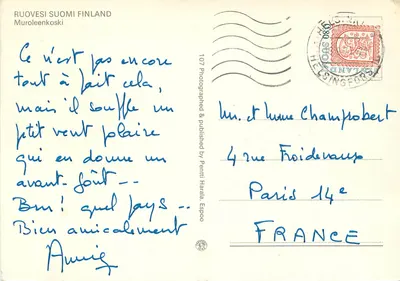 RUOVESI SUOMI FINLAND
Muroleenkoski
Ce n'est pas encore
tout à fait cela,
mais il souffle un
petit vent polaire
qui en donne un
avant-goût --
Brr! quel pays --
Bien amicalement
Annie
107 Photographed & published by Pentti Harala, Espoo
HELSINKI
HELSINGFORS
SUOMI
FINLAND
Mr. et Mme Champrobert
4 rue Froidevaux
Paris 14e
FRANCE